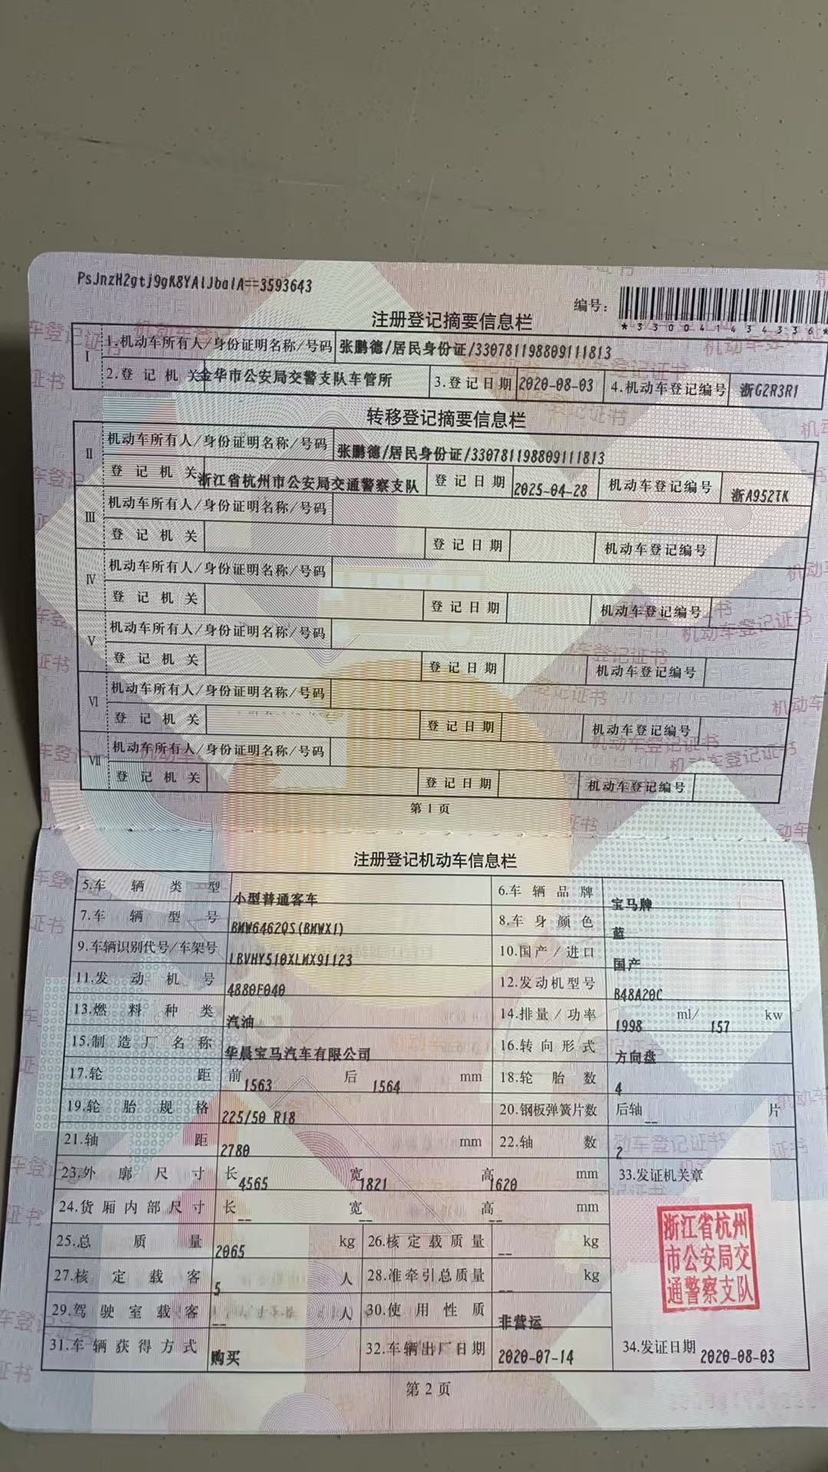 PsJnzH2gtj9gK8YAlJbalA==3593643
编号:
*330041434336*
注册登记摘要信息栏
I 1.机动车所有人/身份证明名称/号码 张鹏德/居民身份证/330781198809111813
2.登记机关 金华市公安局交警支队车管所 3.登记日期 2020-08-03 4.机动车登记编号 浙G2R3R1
转移登记摘要信息栏
II 机动车所有人/身份证明名称/号码 张鹏德/居民身份证/330781198809111813
登记机关 浙江省杭州市公安局交通警察支队 登记日期 2025-04-28 机动车登记编号 浙A952TK
III 机动车所有人/身份证明名称/号码
登记机关 登记日期 机动车登记编号
IV 机动车所有人/身份证明名称/号码
登记机关 登记日期 机动车登记编号
V 机动车所有人/身份证明名称/号码
登记机关 登记日期 机动车登记编号
VI 机动车所有人/身份证明名称/号码
登记机关 登记日期 机动车登记编号
VII 机动车所有人/身份证明名称/号码
登记机关 登记日期 机动车登记编号
第1页
注册登记机动车信息栏
5.车辆类型 小型普通客车 6.车辆品牌 宝马牌
7.车辆型号 BMW6462QS(BMWX1) 8.车身颜色 蓝
9.车辆识别代号/车架号 LBVHY510XLMX91123 10.国产/进口 国产
11.发动机号 4880F040 12.发动机型号 B48A20C
13.燃料种类 汽油 14.排量/功率 1998 ml/ 157 kw
15.制造厂名称 华晨宝马汽车有限公司 16.转向形式 方向盘
17.轮距 前 1563 后 1564 mm 18.轮胎数 4
19.轮胎规格 225/50 R18 20.钢板弹簧片数 后轴 -- 片
21.轴距 2780 mm 22.轴数 2
23.外廓尺寸 长 4565 宽 1821 高 1620 mm 33.发证机关章
24.货厢内部尺寸 长 -- 宽 -- 高 -- mm
25.总质量 2065 kg 26.核定载质量 -- kg
27.核定载客 5 人 28.准牵引总质量 -- kg
29.驾驶室载客 -- 人 30.使用性质 非营运
浙江省杭州
市公安局交
通警察支队
31.车辆获得方式 购买 32.车辆出厂日期 2020-07-14 34.发证日期 2020-08-03
第2页